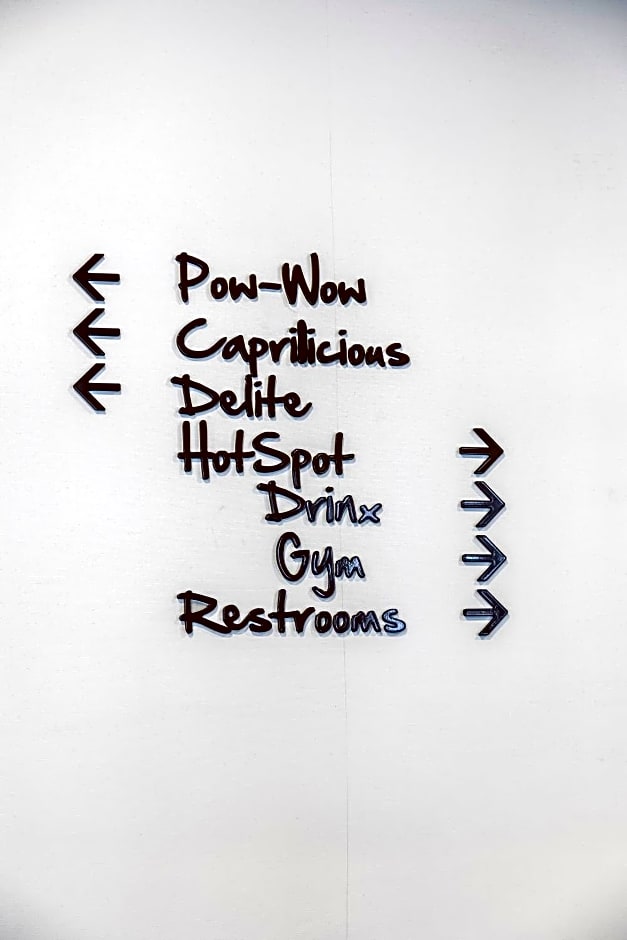 ← Pow-Wow
← Caprilicious
← Delite
HotSpot →
Drinx →
Gym →
Restrooms →